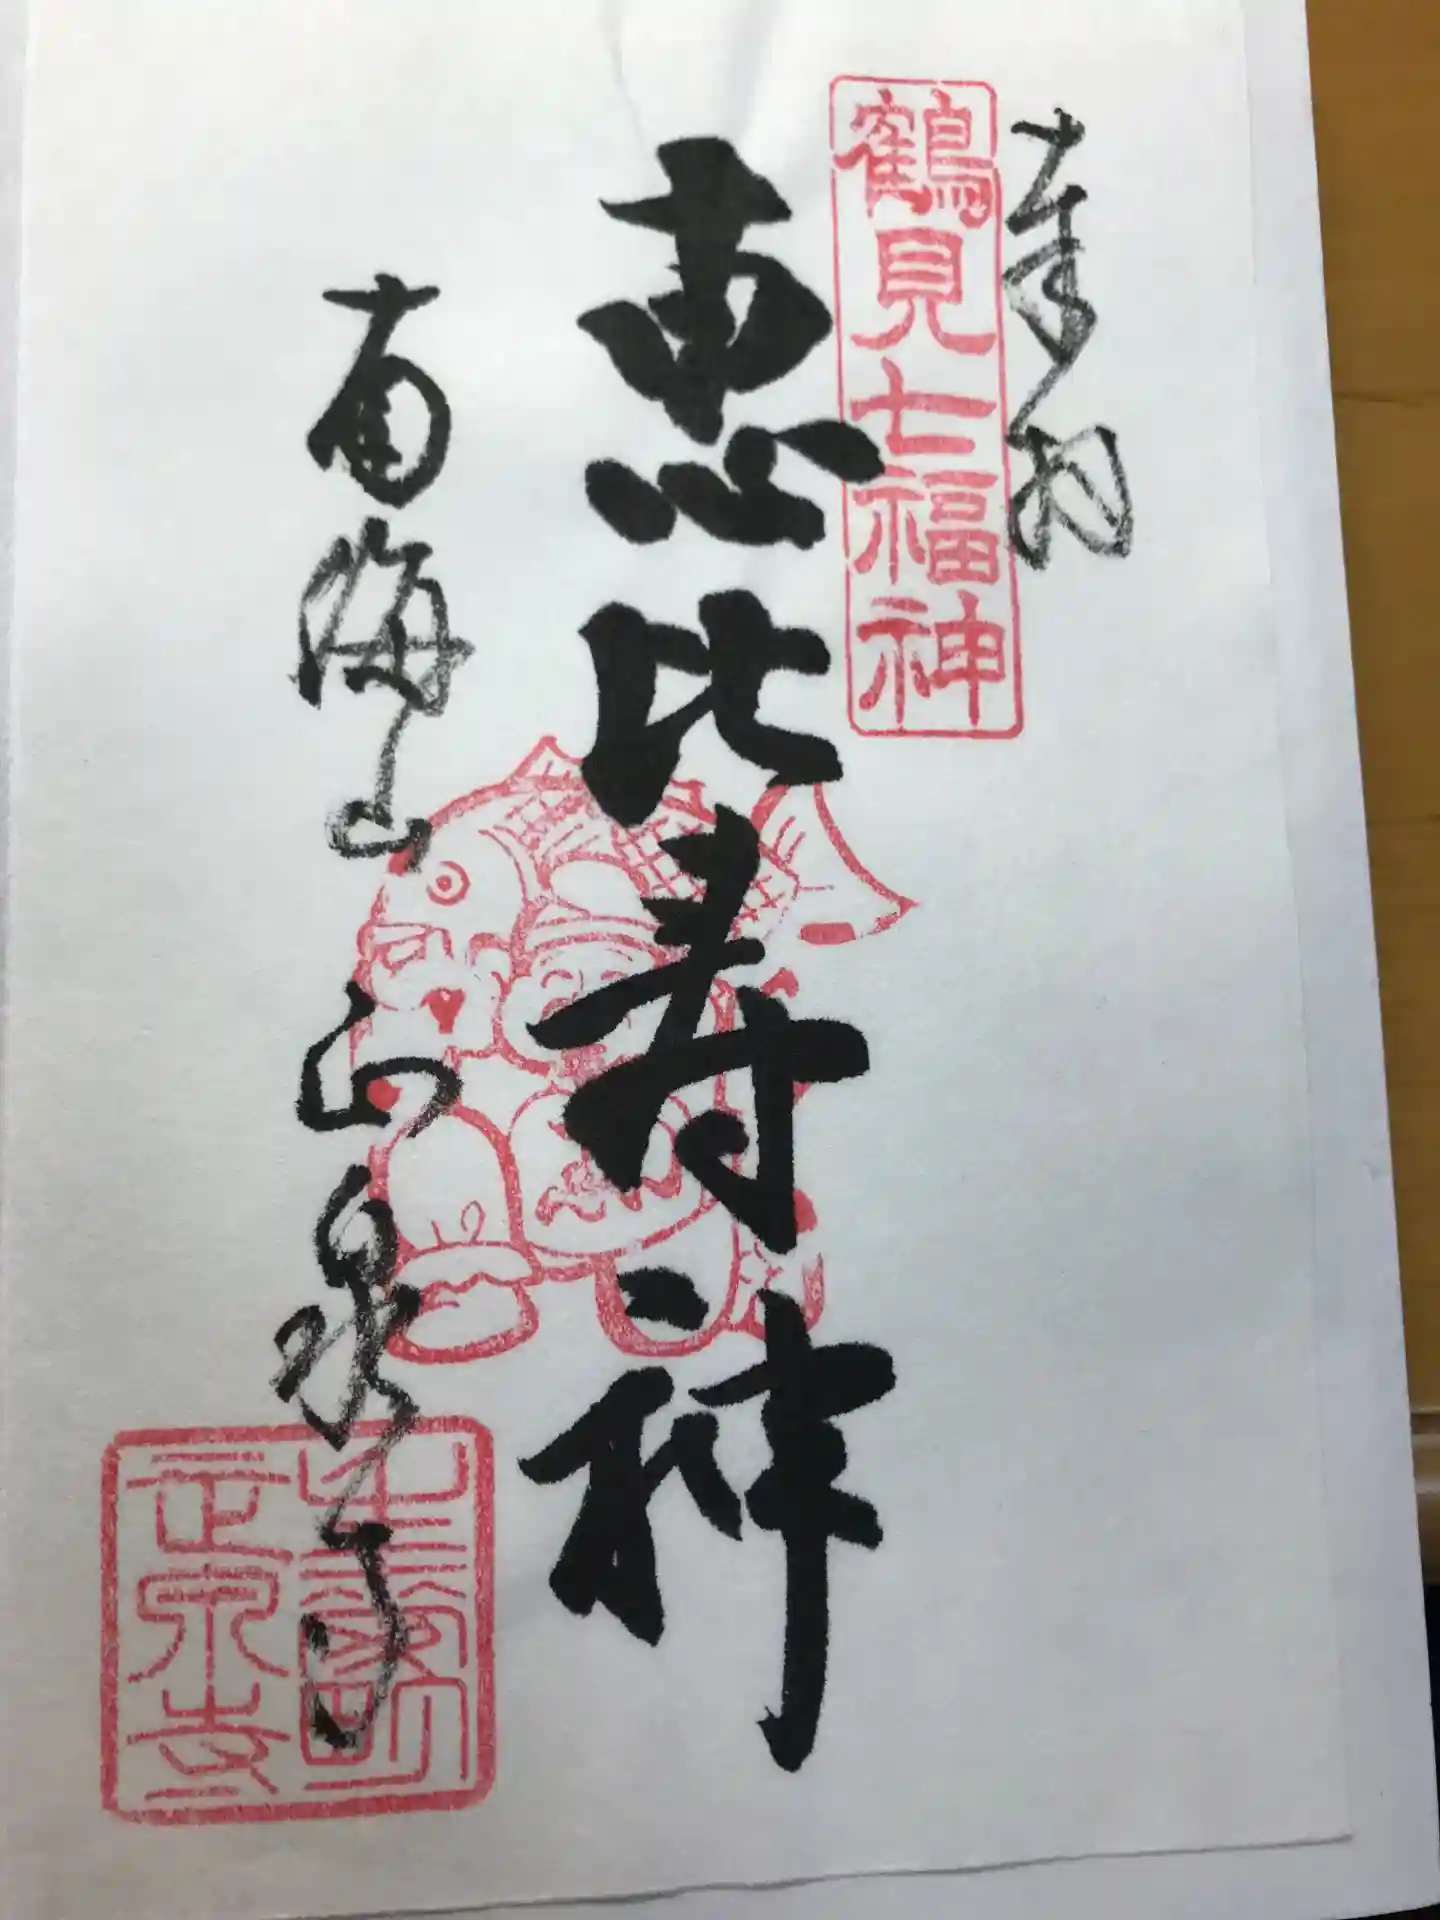 奉拝
鶴見七福神
恵比寿神
南海山
正泉寺